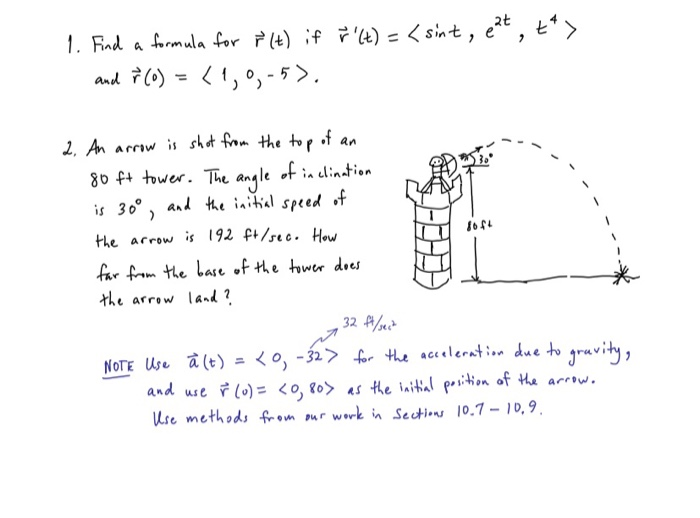 1. Find a formula for r⃗(t) if r⃗'(t) = <sint, e^2t, t^4>
and r⃗(0) = <1, 0, -5>.
2. An arrow is shot from the top of an
80 ft tower. The angle of inclination
is 30°, and the initial speed of
the arrow is 192 ft/sec. How
far from the base of the tower does
the arrow land?
30°
80 ft
32 ft/sec²
NOTE Use a⃗(t) = <0, -32> for the acceleration due to gravity,
and use r⃗(0) = <0, 80> as the initial position of the arrow.
Use methods from our work in Sections 10.7 - 10.9.